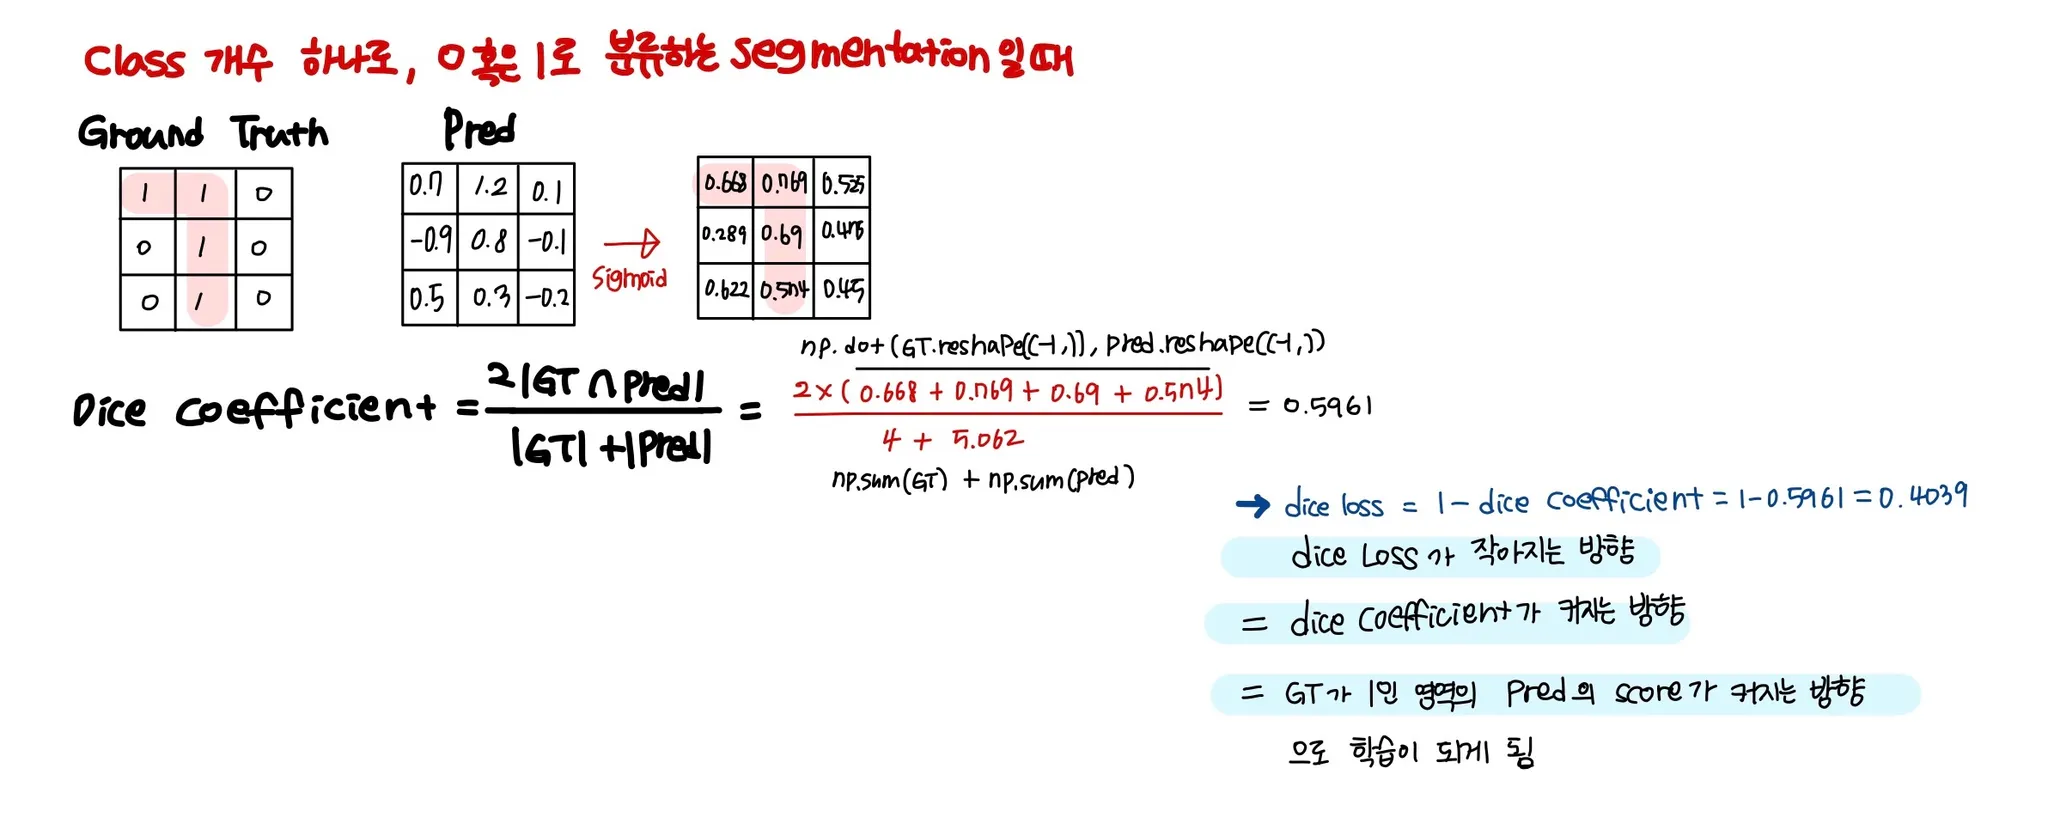 Class 개수 하나로, 0 혹은 1로 분류하는 segmentation 일때
Ground Truth
Pred
1 1 0
0 1 0
0 1 0
0.7 1.2 0.1
-0.9 0.8 -0.1
0.5 0.3 -0.2
→
Sigmoid
0.668 0.769 0.525
0.289 0.69 0.475
0.622 0.574 0.45
np.dot(GT.reshape((-1,)), pred.reshape((-1,))
Dice coefficient = 2|GT ∩ Pred| / |GT| + |Pred| = 2×(0.668 + 0.769 + 0.69 + 0.574) / 4 + 5.062 = 0.5961
np.sum(GT) + np.sum(pred)
→ dice loss = 1 - dice coefficient = 1-0.5961 = 0.4039
dice Loss가 작아지는 방향
= dice coefficient가 커지는 방향
= GT가 1인 영역의 Pred의 score가 커지는 방향
으로 학습이 되게 됨